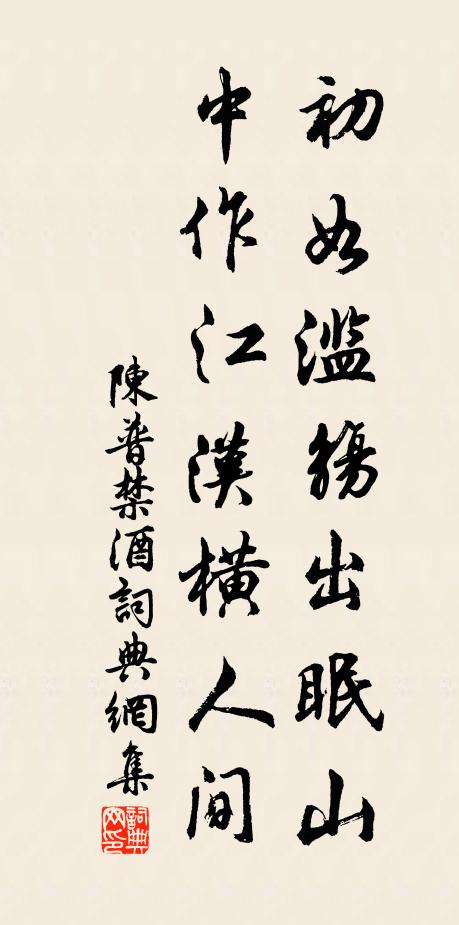 初如滥觞出眠山
中作江漢横人间
陳普禁酒詞典網集
詞典网印